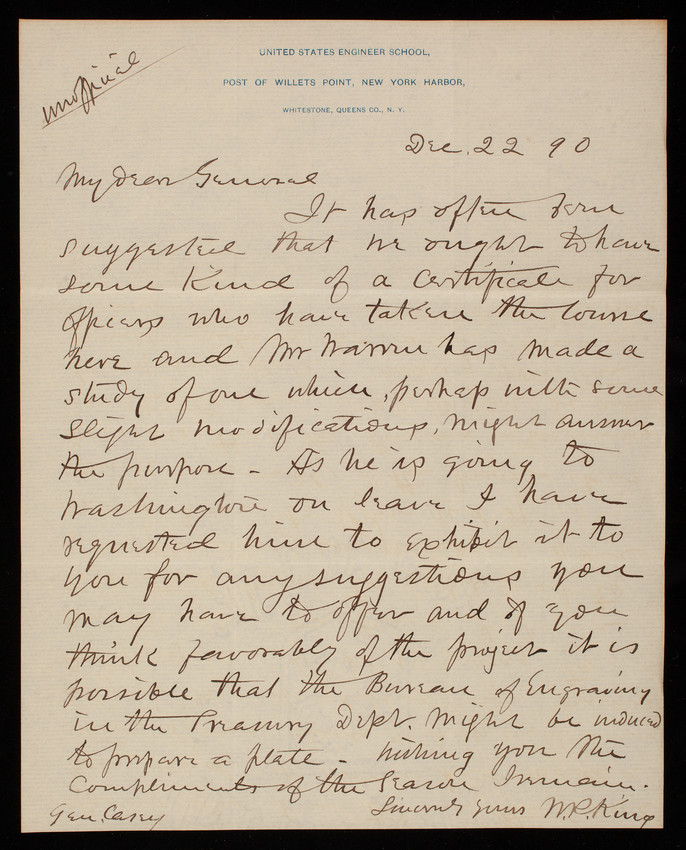 unofficial
UNITED STATES ENGINEER SCHOOL,
POST OF WILLETS POINT, NEW YORK HARBOR,
WHITESTONE, QUEENS CO., N. Y.
Dec. 22 90
My dear General
It has often been
suggested that we ought to have
some kind of a certificate for
officers who have taken the course
here and Mr Warren has made a
study of one which, perhaps with some
slight modifications, might answer
the purpose - As he is going to
Washington on leave I have
requested him to exhibit it to
you for any suggestions you
may have to offer and if you
think favorably of the project it is
possible that the Bureau of Engraving
in the Treasury Dept. might be induced
to prepare a plate - Wishing you the
compliments of the Season I remain.
Sincerely yours W.R. King
Gen. Casey